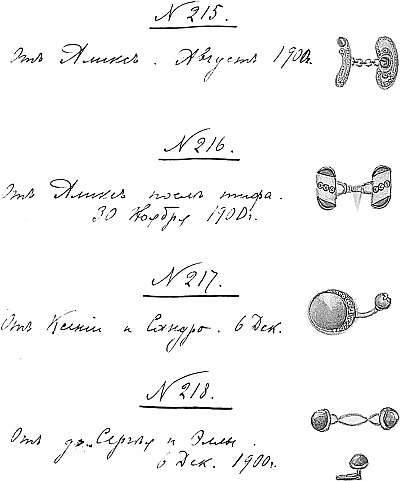 N 215.
Отъ Аликсъ. Августъ 1900г.
N 216.
Отъ Аликсъ послѣ тифа.
30 Ноября 1900г.
N 217.
Отъ Ксеніи и Сандро. 6 Дек.
N 218.
Отъ дя. Сергѣя и Эллы.
6 Дек. 1900г.